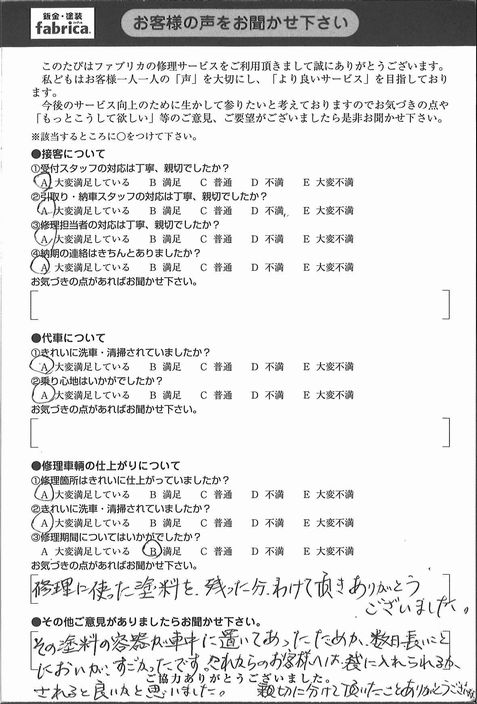 鈑金・塗装
fabrica.
お客様の声をお聞かせ下さい
このたびはファブリカの修理サービスをご利用頂きまして誠にありがとうございます。
私どもはお客様一人一人の「声」を大切にし、「より良いサービス」を目指しており
ます。
今後のサービス向上のために生かして参りたいと考えておりますのでお気づきの点や
「もっとこうして欲しい」等のご意見、ご要望がございましたら是非お聞かせ下さい。
※該当するところに○をつけて下さい。
●接客について
①受付スタッフの対応は丁寧、親切でしたか？
A 大変満足している B 満足 C 普通 D 不満 E 大変不満
②引取り・納車スタッフの対応は丁寧、親切でしたか？
A 大変満足している B 満足 C 普通 D 不満 E 大変不満
③修理担当者の対応は丁寧、親切でしたか？
A 大変満足している B 満足 C 普通 D 不満 E 大変不満
④納期の連絡はきちんとありましたか？
A 大変満足している B 満足 C 普通 D 不満 E 大変不満
お気づきの点があればお聞かせ下さい。
●代車について
①きれいに洗車・清掃されていましたか？
A 大変満足している B 満足 C 普通 D 不満 E 大変不満
②乗り心地はいかがでしたか？
A 大変満足している B 満足 C 普通 D 不満 E 大変不満
お気づきの点があればお聞かせ下さい。
●修理車輌の仕上がりについて
①修理箇所はきれいに仕上がっていましたか？
A 大変満足している B 満足 C 普通 D 不満 E 大変不満
②きれいに洗車・清掃されていましたか？
A 大変満足している B 満足 C 普通 D 不満 E 大変不満
③修理期間についてはいかがでしたか？
A 大変満足している B 満足 C 普通 D 不満 E 大変不満
お気づきの点があればお聞かせ下さい。
修理に使った塗料を、残った分、わけて頂きありがとう
ございました。
●その他ご意見がありましたらお聞かせ下さい。
その塗料の容器が車中に置いてあったためか、数日長いこと
においが、すごかったです。これからのお客様へは、袋に入れられるか
ご協力ありがとうございました。
されると良いかと思いました。 親切に分けて頂いたことありがとうござい